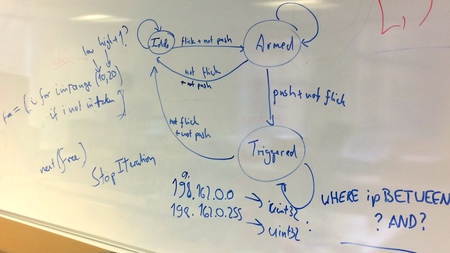 low high+1?
free = (i for i in range(10,20)
if i not in taken)
next(free)
StopIteration
Idle
flick+not push
Armed
not flick
+not push
push+not flick
not flick
+not push
Triggered
198.162.0.0 → uint32
198.162.0.255 → uint32
WHERE ip BETWEEN
? AND?